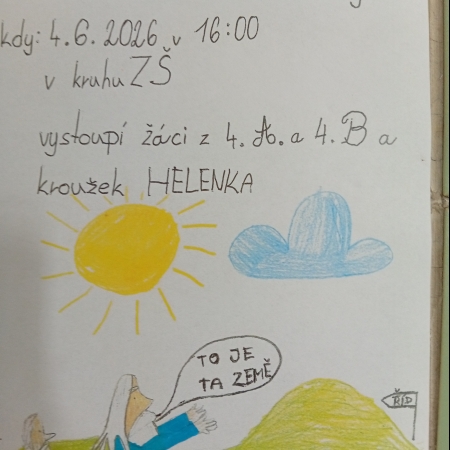 kdy: 4.6.2026 v 16:00
v kruhu ZŠ
vystoupí žáci z 4.A. a 4.B a
kroužek HELENKA
TO JE
TA ZEMĚ
ŘÍP